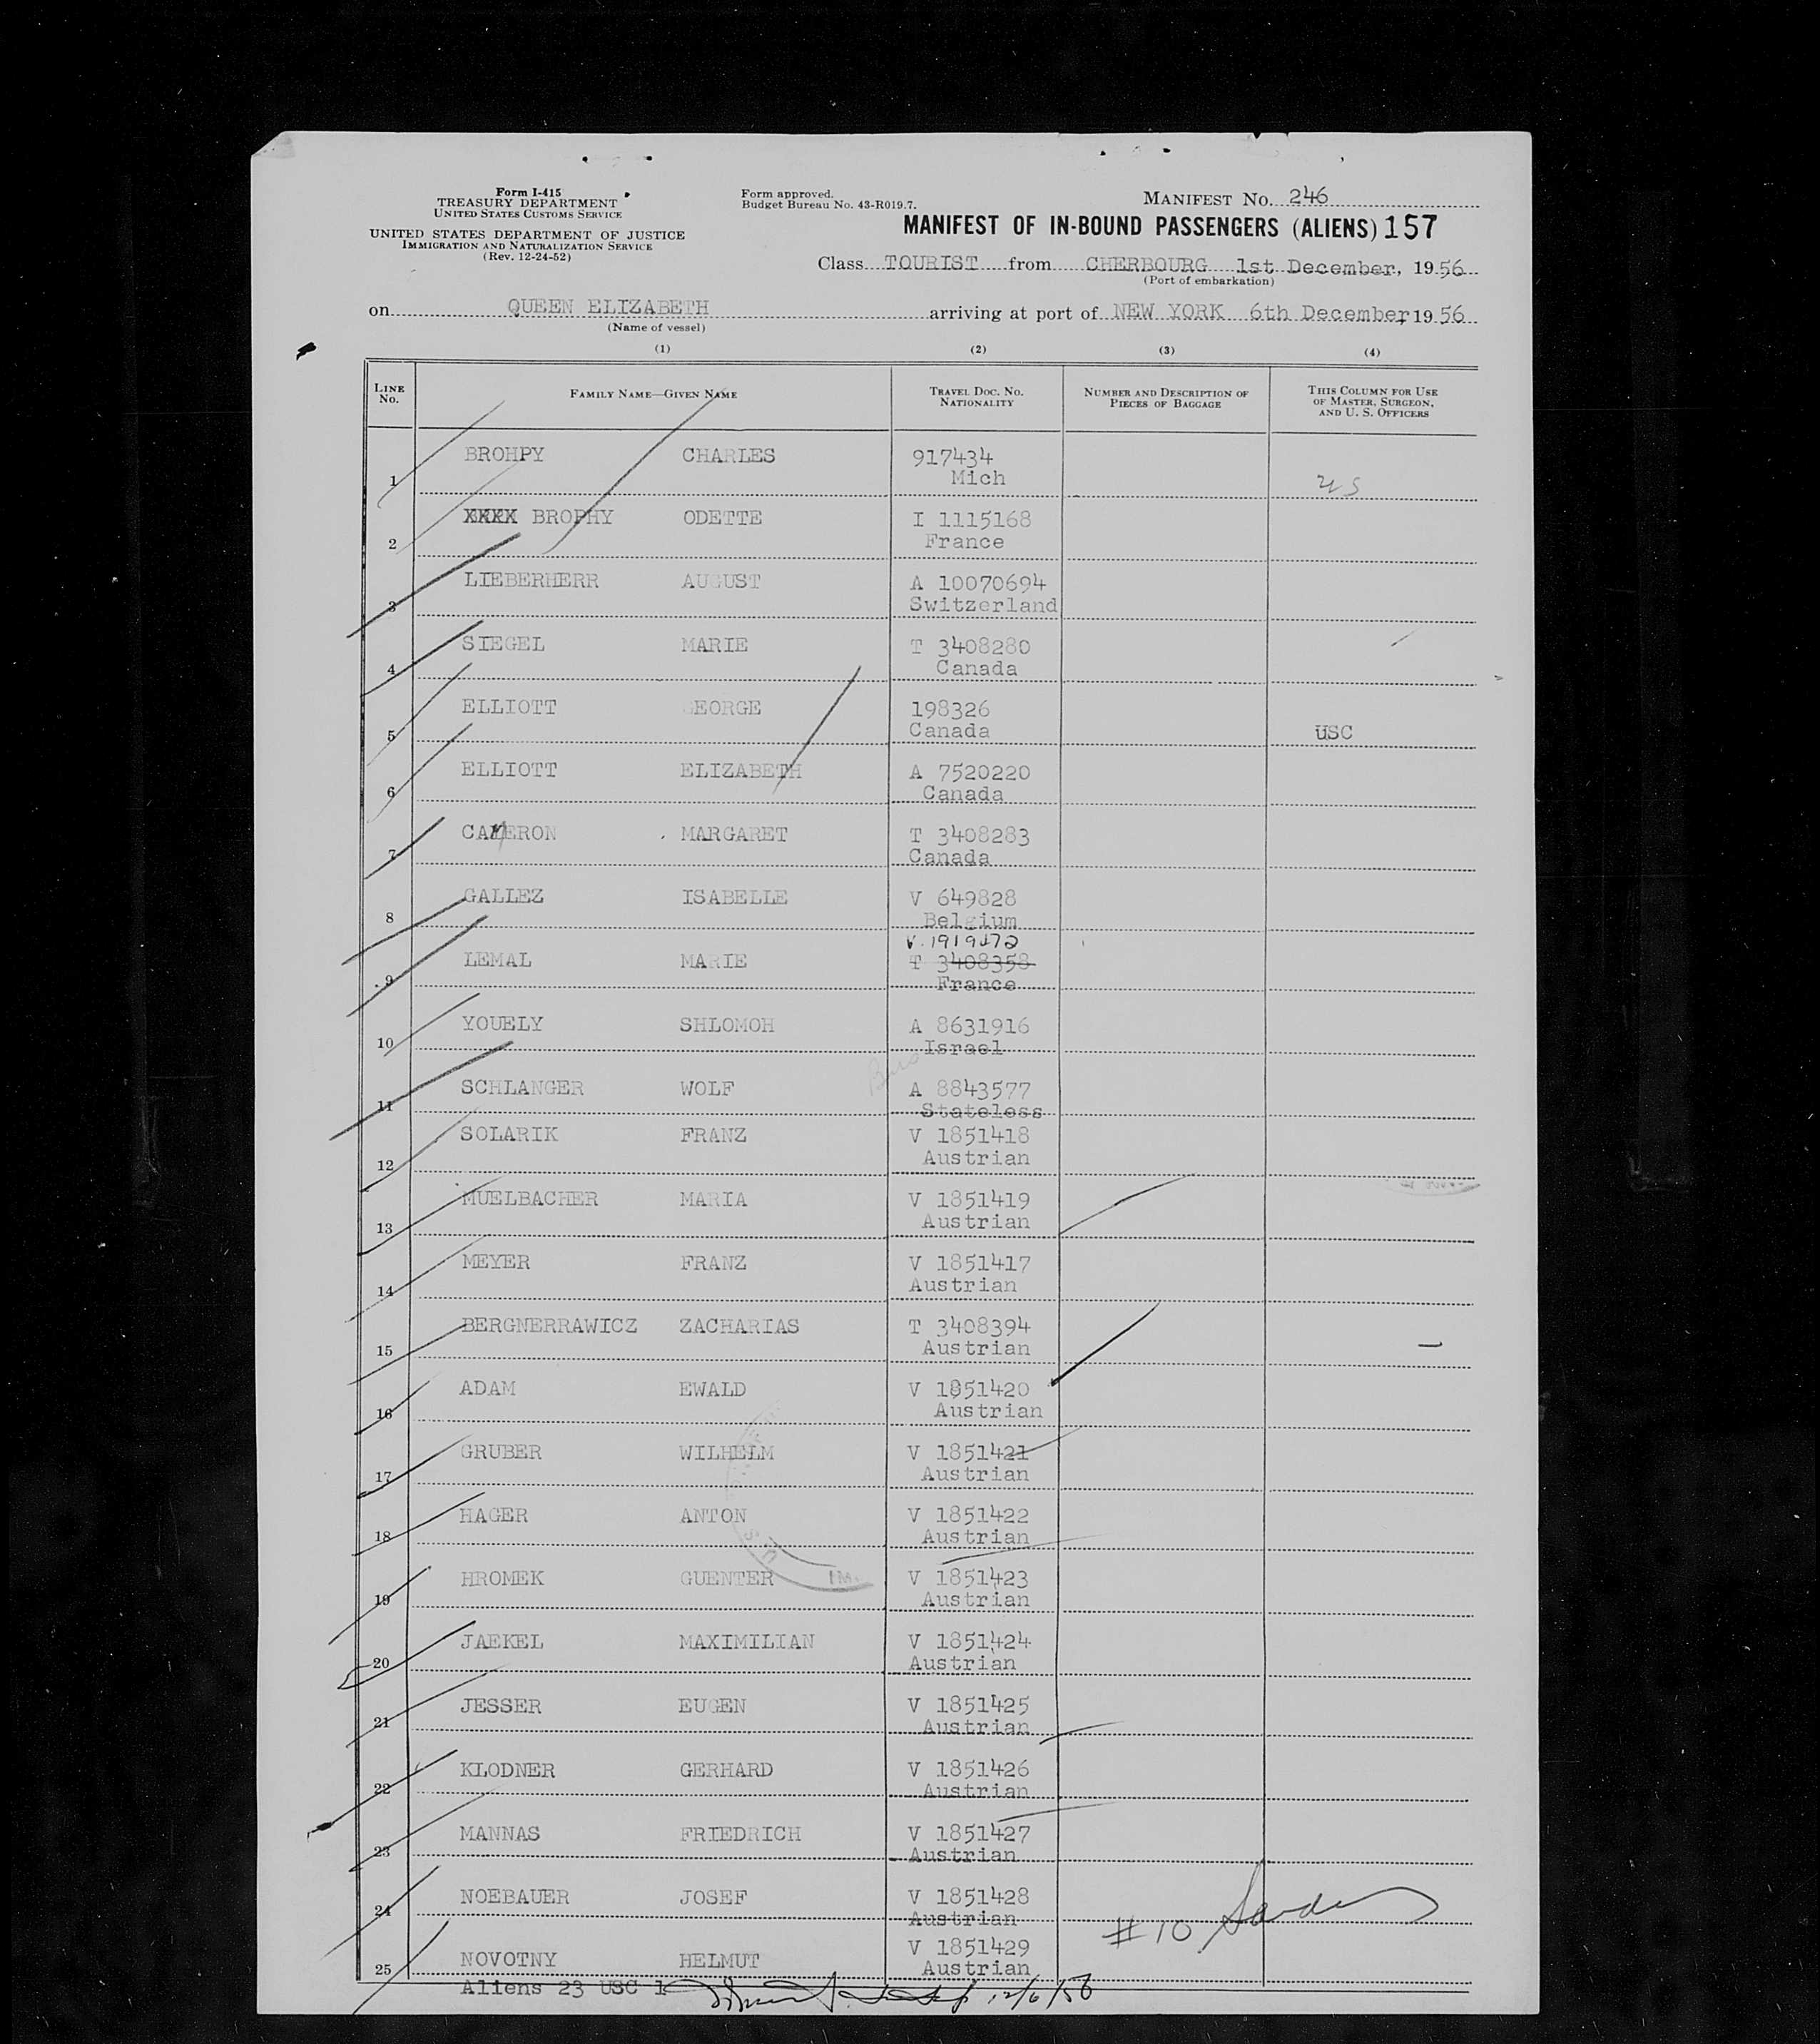 Form I-415
TREASURY DEPARTMENT
UNITED STATES CUSTOMS SERVICE
UNITED STATES DEPARTMENT OF JUSTICE
IMMIGRATION AND NATURALIZATION SERVICE
(Rev. 12-24-52)
Form approved.
Budget Bureau No. 43-R019.7.
MANIFEST NO. 246
MANIFEST OF IN-BOUND PASSENGERS (ALIENS) 157
Class TOURIST from CHERBOURG 1st December, 1956
(Port of embarkation)
on QUEEN ELIZABETH arriving at port of NEW YORK 6th December, 1956
(Name of vessel)
(1) (2) (3) (4)
LINE No. FAMILY NAME—GIVEN NAME TRAVEL DOC. NO. NATIONALITY NUMBER AND DESCRIPTION OF PIECES OF BAGGAGE THIS COLUMN FOR USE OF MASTER, SURGEON, AND U. S. OFFICERS
1 BROHPY CHARLES 917434
Mich US
2 XXXX BROPHY ODETTE I 1115168
France
3 LIEBERHERR AUGUST A 10070694
Switzerland
4 SIEGEL MARIE T 3408280
Canada
5 ELLIOTT GEORGE 198326
Canada USC
6 ELLIOTT ELIZABETH A 7520220
Canada
7 CAMERON MARGARET T 3408283
Canada
8 GALLEZ ISABELLE V 649828
Belgium
V. 1919472
9 LEMAL MARIE T 3408358
France
10 YOUELY SHLOMOH A 8631916
Israel
11 SCHLANGER WOLF A 8843577
Stateless
12 SOLARIK FRANZ V 1851418
Austrian
13 MUELBACHER MARIA V 1851419
Austrian
14 MEYER FRANZ V 1851417
Austrian
15 BERGNERRAWICZ ZACHARIAS T 3408394
Austrian
16 ADAM EWALD V 1851420
Austrian
17 GRUBER WILHELM V 1851421
Austrian
18 HAGER ANTON V 1851422
Austrian
19 HROMEK GUENTER V 1851423
Austrian
20 JAEKEL MAXIMILIAN V 1851424
Austrian
21 JESSER EUGEN V 1851425
Austrian
22 KLODNER GERHARD V 1851426
Austrian
23 MANNAS FRIEDRICH V 1851427
Austrian
24 NOEBAUER JOSEF V 1851428
Austrian
# 10
25 NOVOTNY HELMUT V 1851429
Austrian
Aliens 23 USC 1 12/6/56